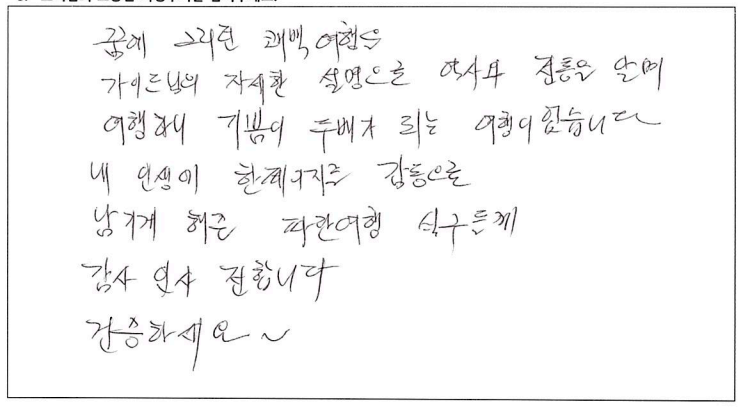 꿈에 그리던 퀘백 여행을
가이드님의 자세한 설명으로 역사와 전통을 알며
여행하니 기쁨이 두배가 되는 여행이 있습니다
내 인생이 한페이지를 감동으로
남기게 해준 파란여행 식구들께
감사 인사 전합니다
건승하세요~